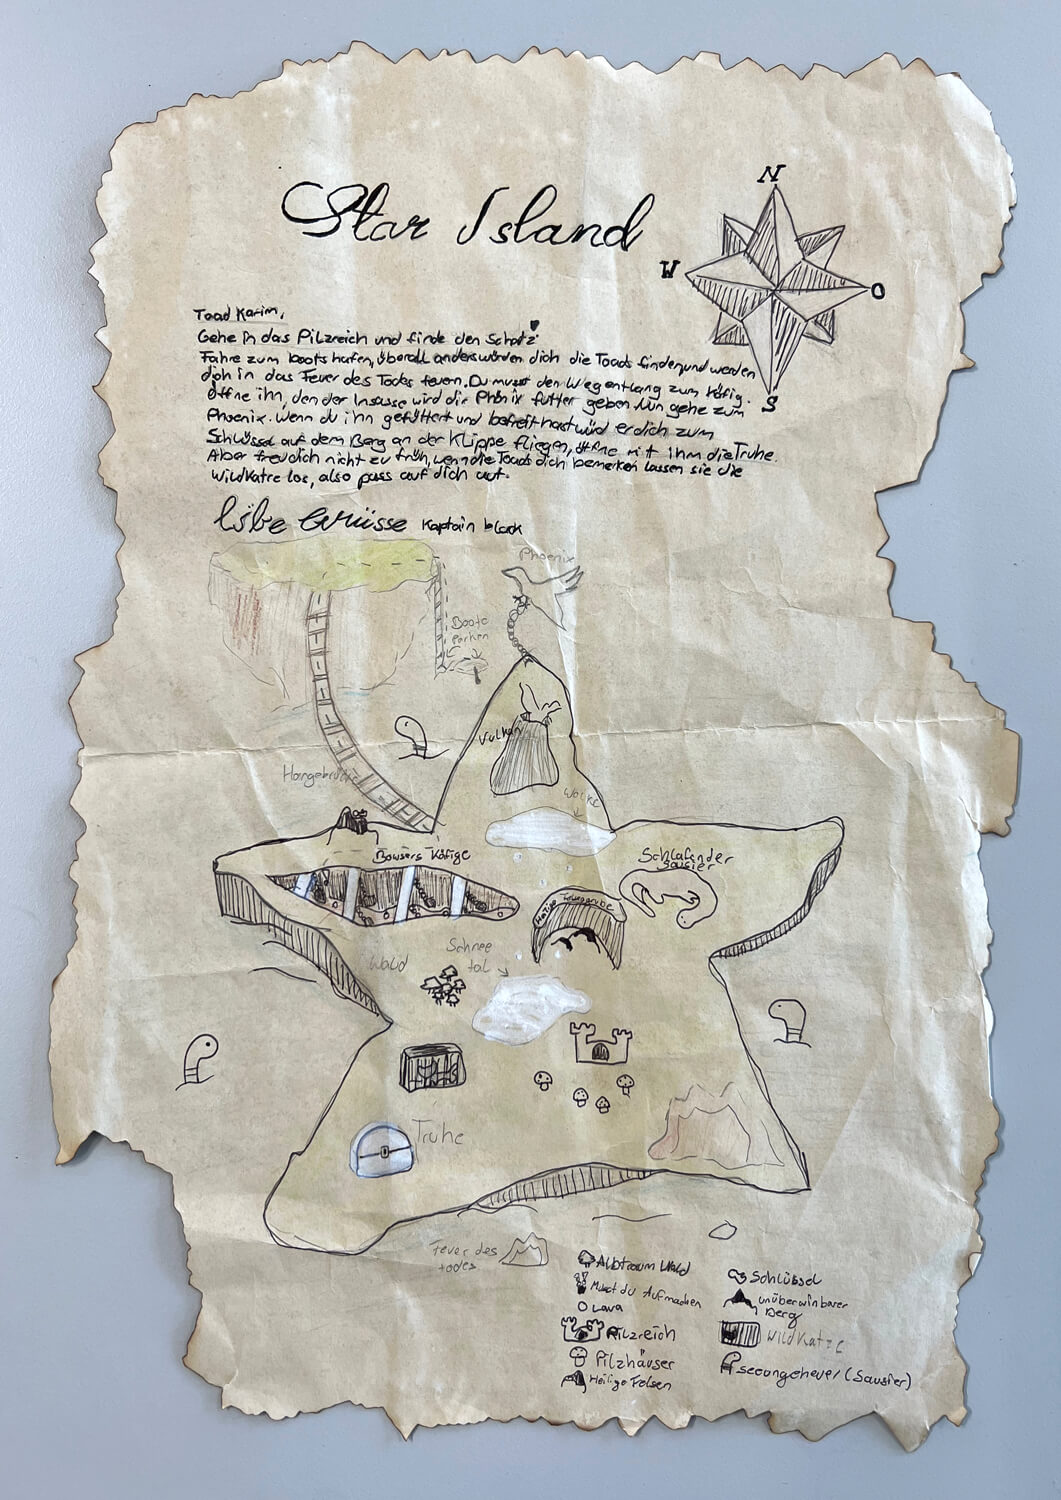 Star Island
N
W
O
S
Toad Karim,
Gehe in das Pilzreich und finde den Schatz
Fahre zum boots hafen, überall anders würden dich die Toads finden und werden
dich in das Feuer des Todes feuern. Du musst den Weg entlang zum Käfig.
Öffne ihn, den der Insasse wird dir Phönix futter geben. Nun gehe zum
Phoenix. Wenn du ihn gefüttert und befreit hast würd er dich zum
Schlüssel auf dem Berg an der Klippe fliegen, öffne mit ihm die Truhe.
Aber freu dich nicht zu früh, wenn die Toads dich bemerken lassen sie die
Wildkatze los, also pass auf dich auf.
libe Grüsse Kaptain black
Phoenix
Boote
Vulkan
Hängebrücke
Wolke
Bowsers Käfige
Schlafender
Sausier
Heilige
Wald
Schnee
tal
Truhe
Feuer des
todes
Albtraum Wald
Musst du Aufmachen
Lava
Pilzreich
Pilzhäuser
Heilige Felsen
Schlüssel
unüberwinbarer
Berg
Wildkatze
seeungeheuer (Sausier)